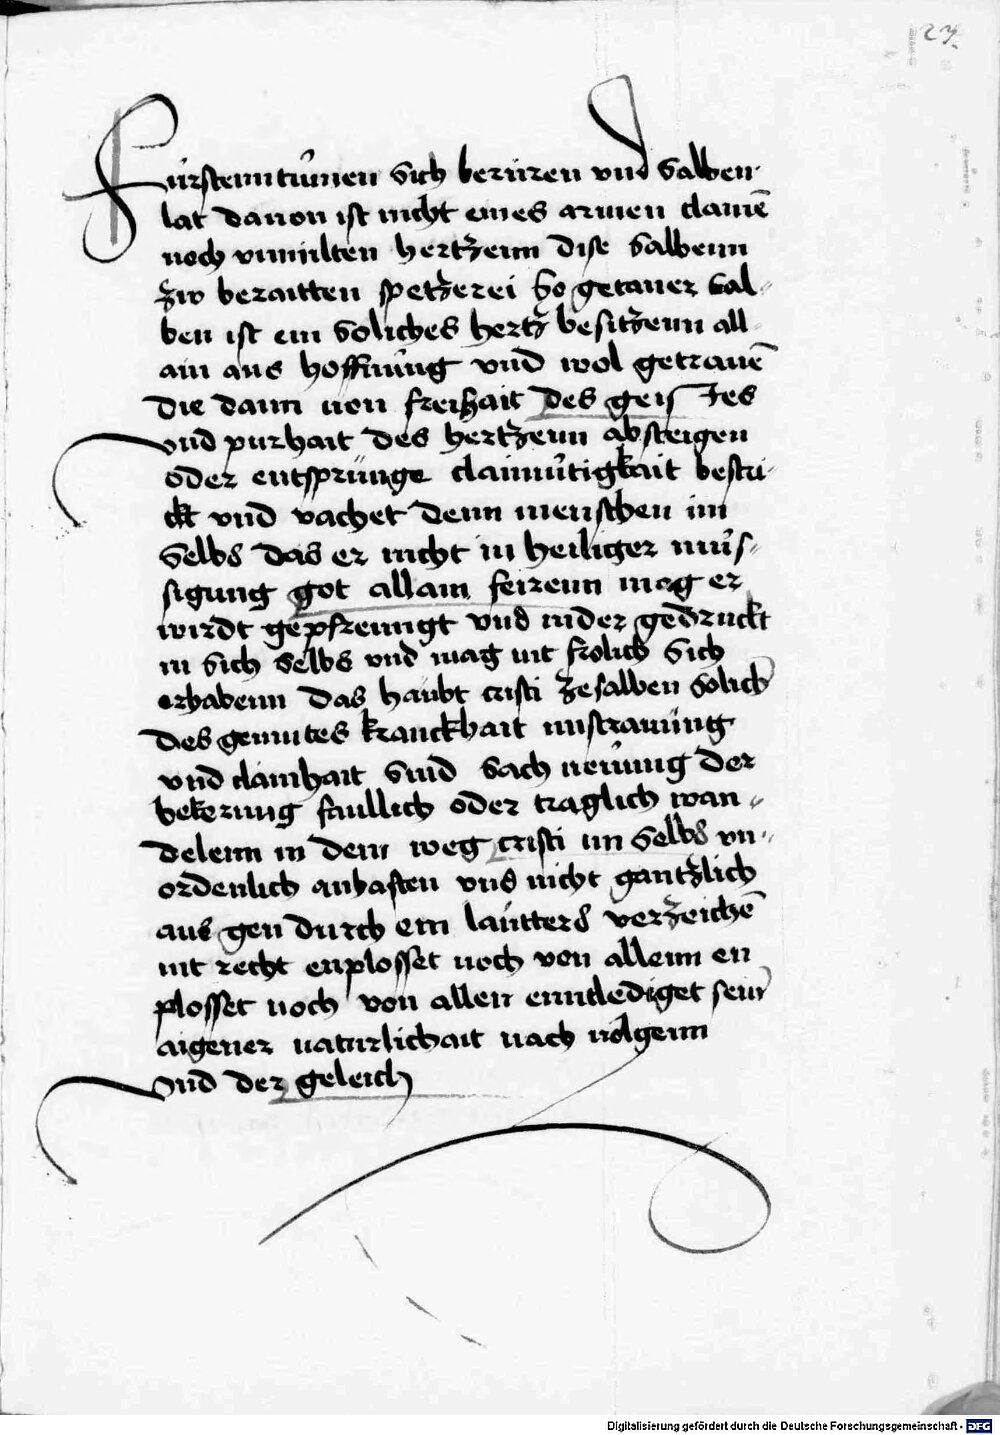 27.
Fürstenntümen sich berüren vnd salben
lat dauon ist nicht eines armen clainē
noch vnmilten hertzenn dise salbenn
zw beraitten spetzerei So getaner sal-
ben ist ein soliches hertz besitzenn all-
ain aus hoffnüng vnd wol getrauē
die dann uon freihait des geistes
vnd purhait des hertzenn absteigen
oder entsprünge clainmütigkait bestri-
ckt vnd vachet denn menschen im
selbs das er nicht in heiliger müs-
sigung got allain feirenn mag er
wirdt gepfrenngt vnd nider gedruckt
in sich selbs vnd mag nit frolich sich
erhabenn das haübt cristi zesalben solich
des gemütes kranckhait misstrauüng
vnd clainhait sind sach neüung der
bekerung faullich oder traglich wan-
delenn in dem weg cristi im selbs vn-
ordenlich anhaften vnd nicht gantzlich
aus gen durch ein laütters verzeichē
nit recht enplosset noch von allenn en
plosset noch von allen enntlediget sein
aigener naturlichait nach uolgenn
vnd der geleich
Digitalisierung gefördert durch die Deutsche Forschungsgemeinschaft - DFG